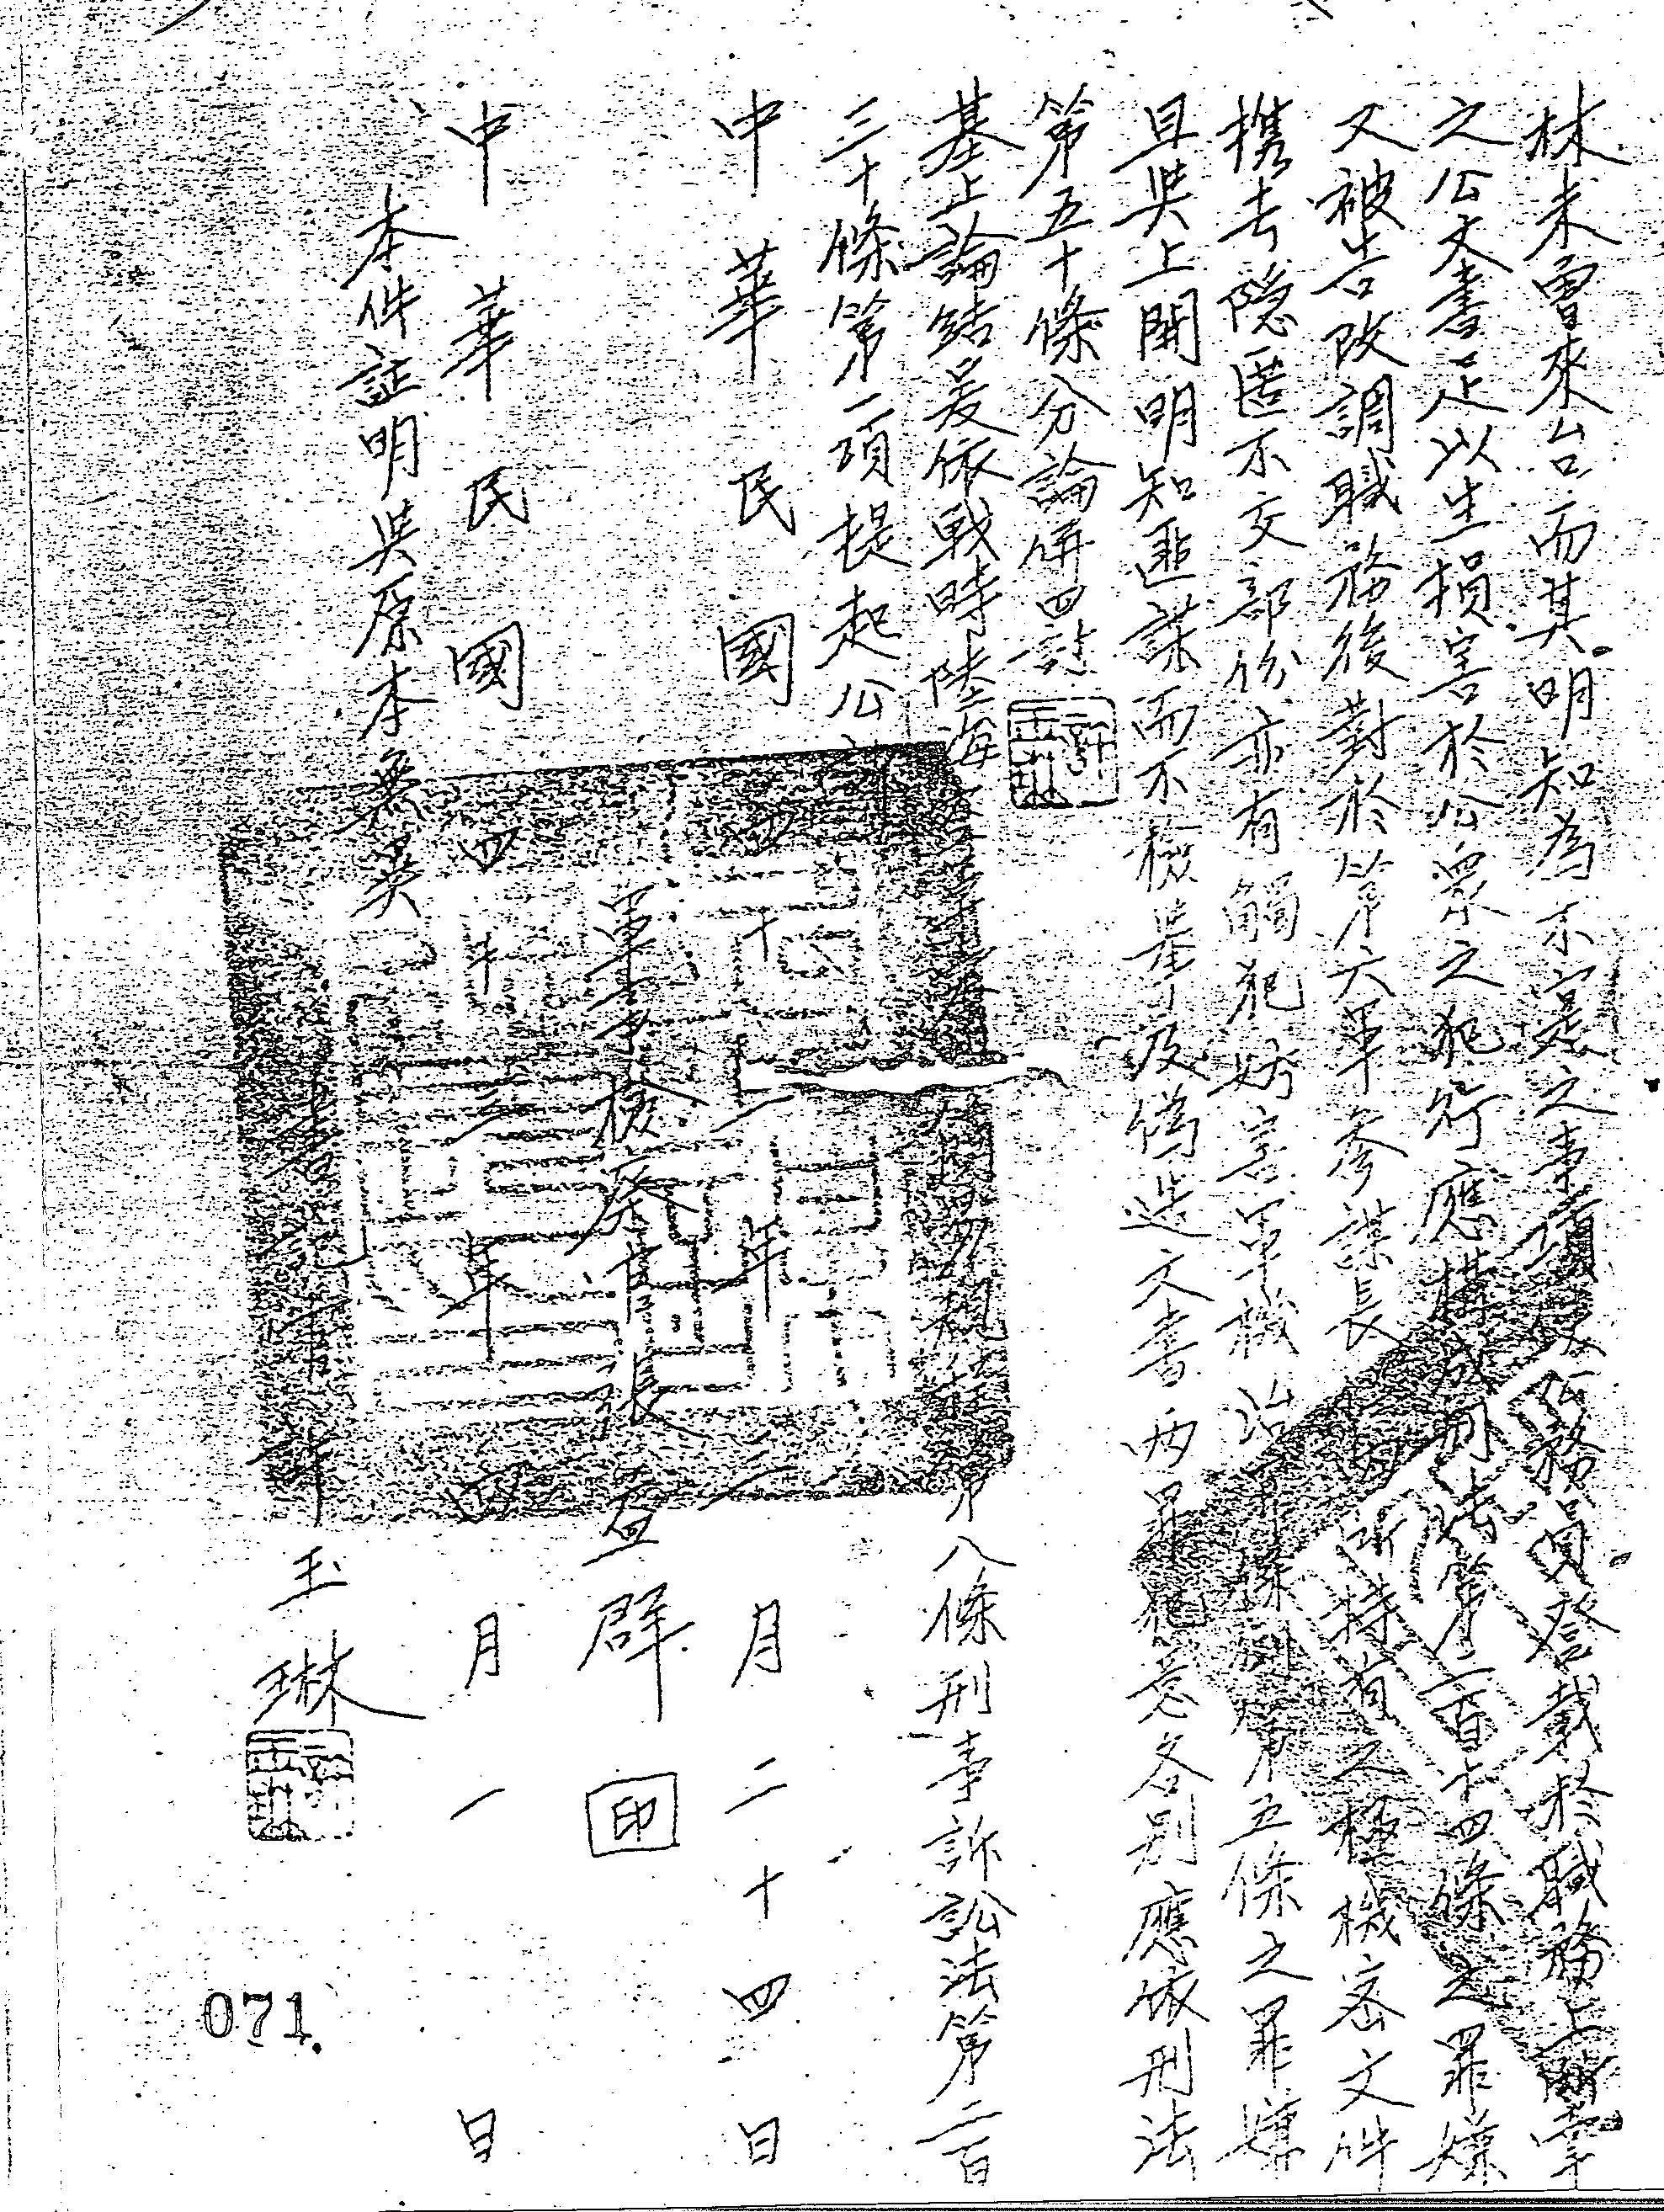 林未曾來台而其明知為不實之事項使公務員登載於職務上所掌
之公文書足以生損害於公眾之犯行應構成刑法第二百十四條之罪嫌
又被告改調職務後對於第六軍參謀長內所持有之極機密文件
携去隐匿不交部份亦有觸犯妨害軍機治罪條例第五條之罪嫌
且與上開明知匪諜而不檢舉及偽造文書兩罪犯意各別應依刑法
第五十條分論併罰
基上論結爰依戰時陸海空軍審判簡易規程第八條刑事訴訟法第二百
三十條第一項提起公訴
中華民國四十二年二月二十四日
軍事檢察官張益群 印
中華民國四十三年四月一日
本件証明與原本無異
書記官許玉琳
071